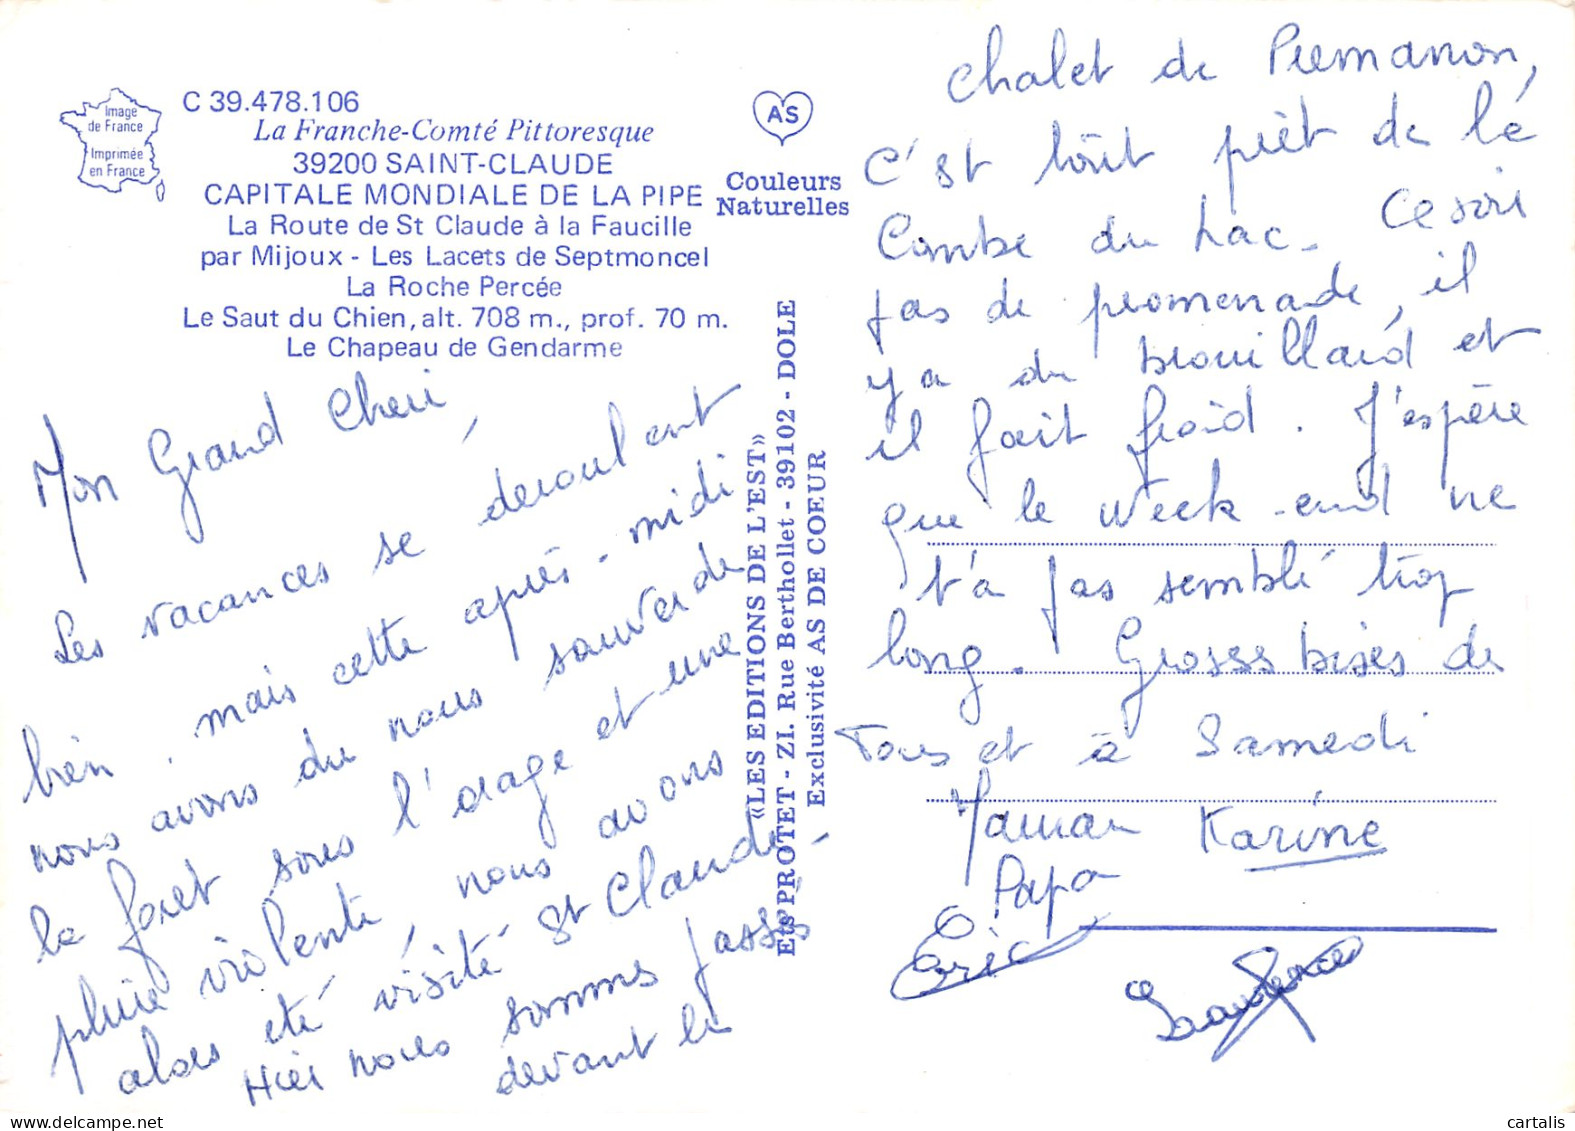 Image
de France
Imprimée
en France
C 39.478.106
La Franche-Comté Pittoresque
39200 SAINT-CLAUDE
CAPITALE MONDIALE DE LA PIPE
La Route de St Claude à la Faucille
par Mijoux - Les Lacets de Septmoncel
La Roche Percée
Le Saut du Chien, alt. 708 m., prof. 70 m.
Le Chapeau de Gendarme
AS
Couleurs
Naturelles
«LES EDITIONS DE L'EST»
Ets PROTET - ZI. Rue Berthollet - 39102 - DOLE
Exclusivité AS DE COEUR
Mon Grand Cheri,
Les vacances se déroulent
bien, mais cette après-midi
nous avons du nous sauver de
la foret sous l'orage et une
pluie violente, nous avons
alors été visité St Claude.
Hier nous sommes passés
devant le
chalet de Premanon,
C'st tout prêt de la
Combe du Lac. Ce soir
pas de promenade, il
y a du brouillard et
il fait froid. J'espère
que le week-end ne
t'a pas semblé trop
long. Grosses bises de
Tous et à Samedi
Maman Karine
Papa
Eric
Laurence
cartalis